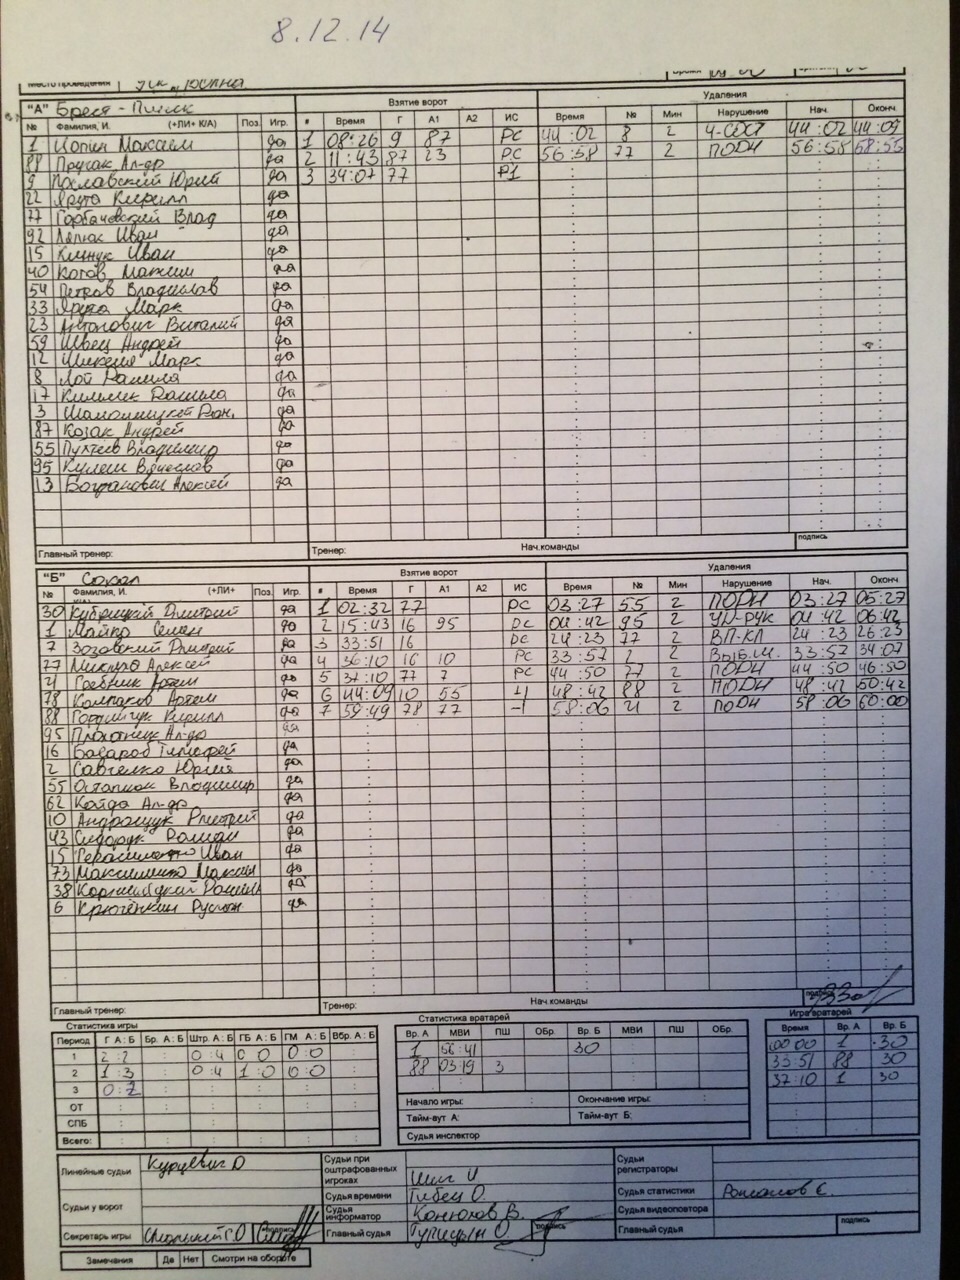 8.12.14
Место проведения
"А" Брест - Пинск Взятие ворот Удаления
№ Фамилия, И. (+ЛИ+ К/А) Поз. Игр. # Время Г А1 А2 ИС Время № Мин Нарушение Нач. Оконч.
1 Копич Максим да 1 08:26 9 87 РС 44:02 8 2 44:02
88 Прусак Ал-др да 2 11:43 87 23 РС 56:58 77 2 ПОДН 56:58
9 Пославский Юрий да 3 34:07 77
22 Ярута Кирилл да
77 Горбачевский Влад да
92 Иван да
15 Климук Иван да
40 Котов Максим да
54 Петров Владислав да
33 Ярута Марк да
23 Антонович Виталий да
59 Швец Андрей да
12 Марк да
8 Лой Данила да
17 Данила да
3 да
87 Козак Андрей да
55 Владимир да
95 Кулеш Вячеслав да
13 Богданович Алексей да
Главный тренер: Тренер: Нач.команды подпись
"Б" Сокол Взятие ворот Удаления
№ Фамилия, И. (+ЛИ+ Поз. Игр. # Время Г А1 А2 ИС Время № Мин Нарушение Нач. Оконч
30 Кубрицкий Дмитрий да 1 02:32 77 РС 03:27 55 2 ПОДН 03:27 05:27
1 Майко Семен да 2 15:43 16 95 РС 04:42 95 2 04:42 06:42
7 Зозовский Дмитрий да 3 33:51 16 РС 24:23 77 2 ВП-КЛ 24:23 26:23
77 Микула Алексей да 4 36:10 16 10 РС 33:57 2 2 33:57 34:07
21 Гребник Артем да 5 37:10 77 7 РС 44:50 77 2 ПОДН 44:50 46:50
78 Компаков Артем да 6 44:09 10 55 +1 48:42 88 2 ПОДН 48:42 50:42
88 Гордийчук Кирилл да 7 59:49 78 77 -1 58:06 21 2 ПОДН 58:06 60:00
95 Плотник Ал-др да
16 Тимофей да
2 Савченко Юрий да
55 Остапюк Владимир да
62 Кайда Ал-др да
10 Андрощук Дмитрий да
43 Сидорук Роман да
15 Герасименко Иван да
73 Максименко Максим да
38 Данила да
6 Крючёнкин Руслан да
Главный тренер: Тренер: Нач.команды подпись
Статистика игры Статистика вратарей Игра вратарей
Период Г А : Б Бр. А : Б Штр. А : Б ГБ А : Б ГМ А : Б Вбр. А : Б Вр. А МВИ ПШ Обр. Вр. Б МВИ ПШ Обр. Время Вр. А Вр. Б
1 2:2 0:4 0:0 0:0 1 56:41 30 00:00 1 30
2 1:3 0:4 1:0 0:0 88 03:19 3 33:51 88 30
3 0:2 37:10 1 30
ОТ Начало игры: Окончание игры:
СПБ Тайм-аут А: Тайм-аут Б:
Всего: Судья инспектор
Линейные судьи Курцевич Д Судьи при оштрафованных игроках Шиш И Судьи регистраторы
Судья времени Гибец О. Судья статистики Романов Е.
Судьи у ворот Судья информатор Конюхов В. Судья видеоповтора
Секретарь игры подпись Главный судья Гупицын О. подпись Главный судья подпись
Замечания Да Нет Смотри на обороте